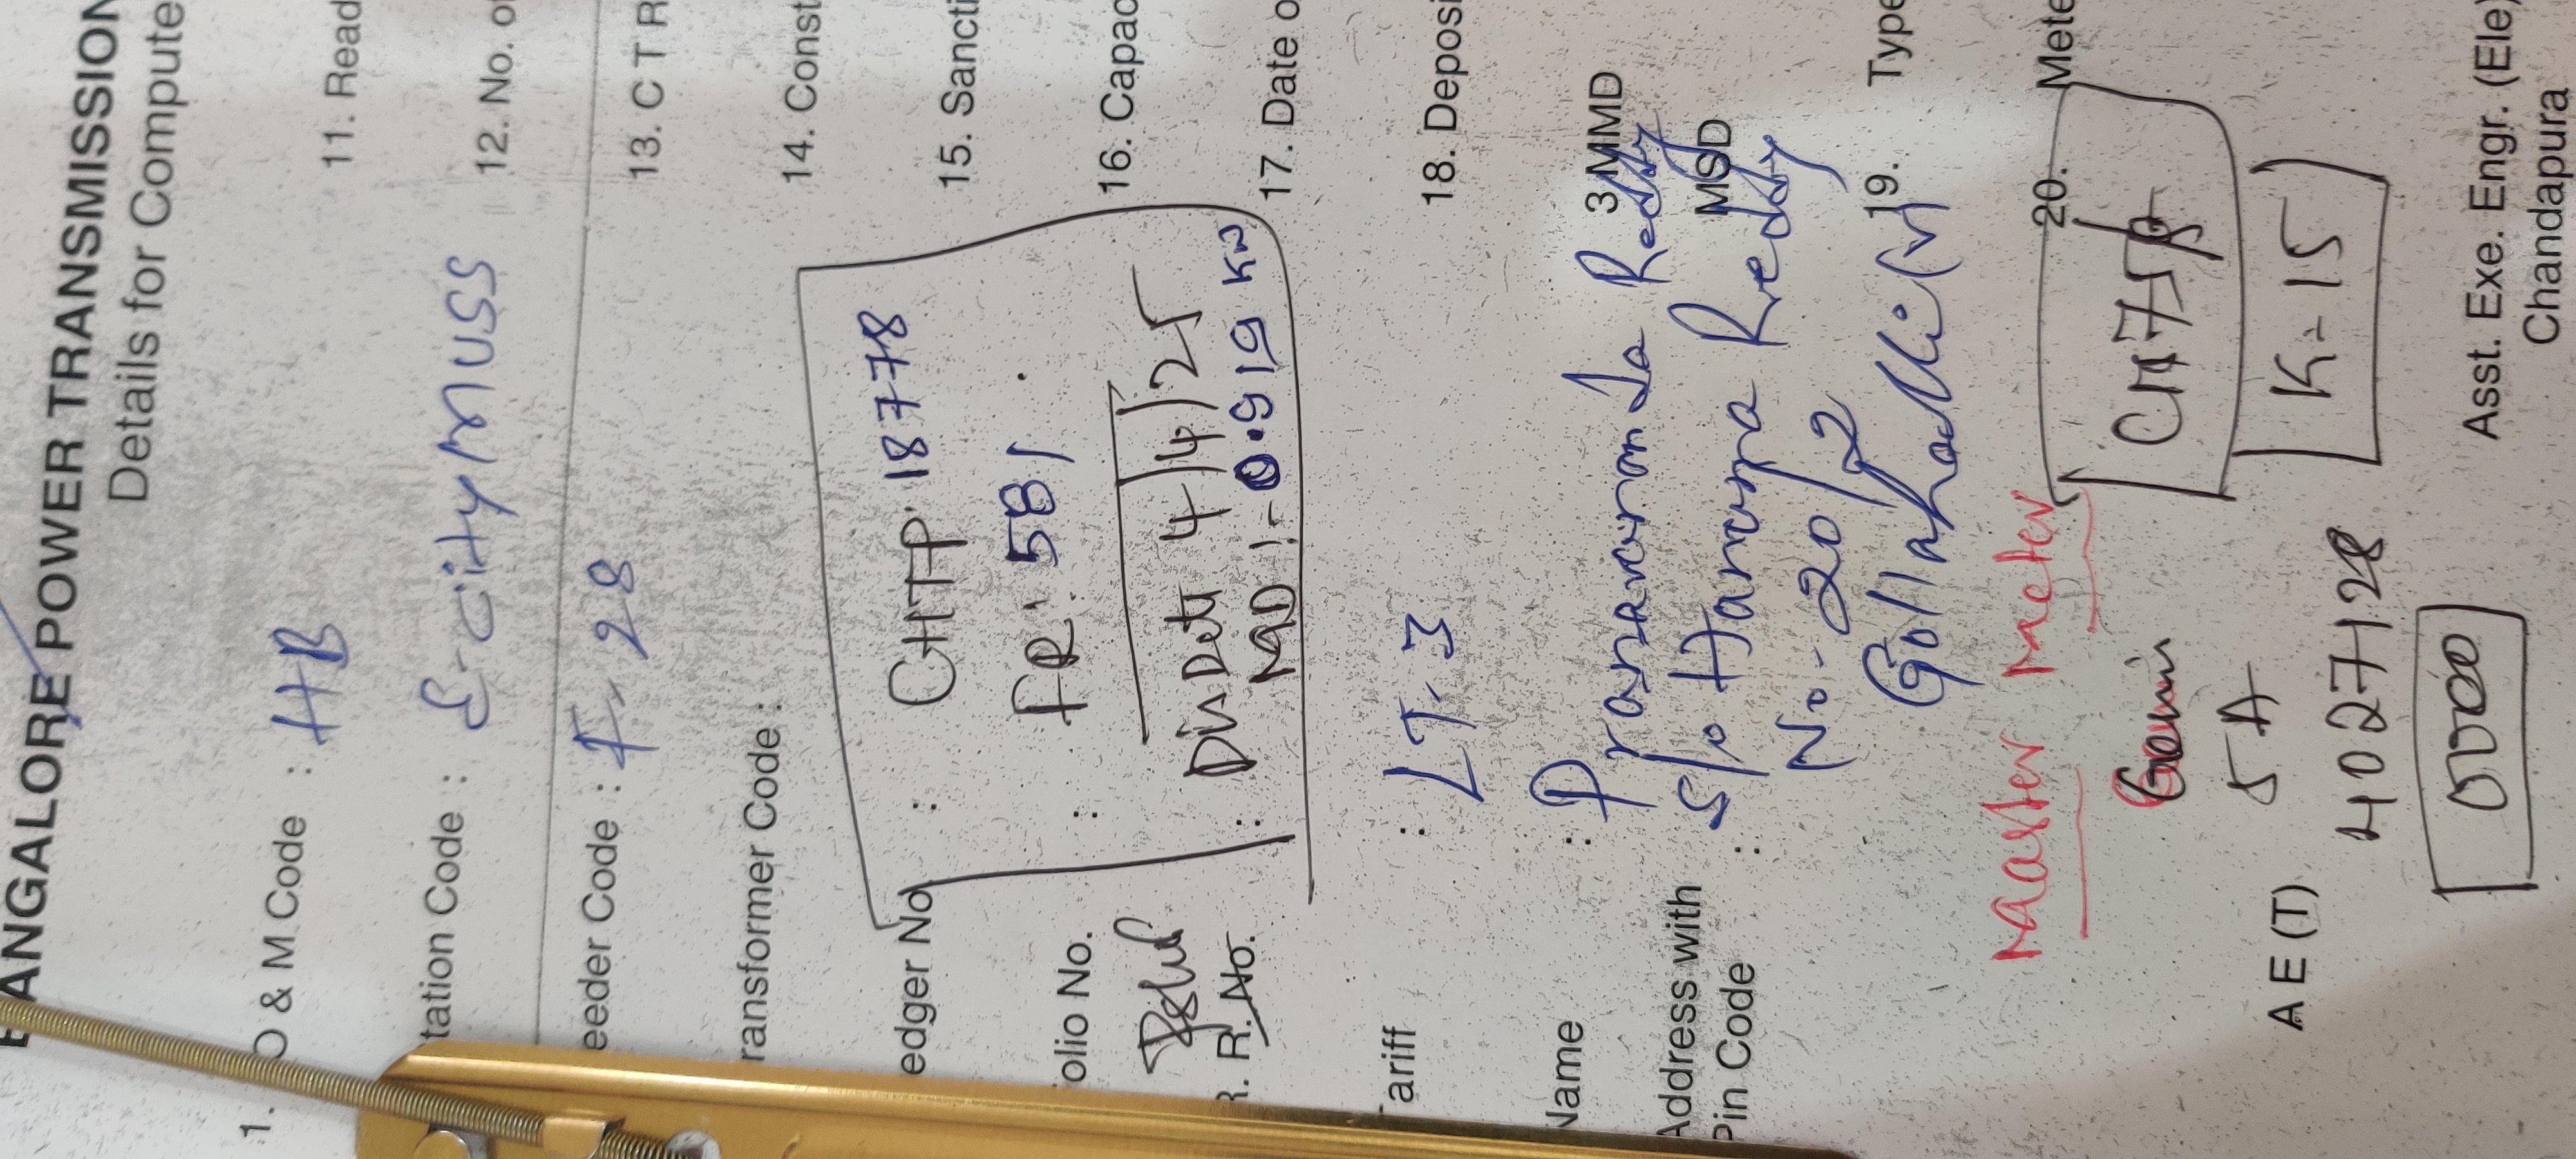 BANGALORE POWER TRANSMISSION
Details for Compute
1. O & M Code : HB
11. Read
tation Code : E-city MUSS
12. No. of
eeder Code : F-28
13. C T R
ransformer Code :
14. Const
edger No : GHTP 18778
15. Sancti
olio No. : FR: 581
16. Capac
4/4/25
R. R. No. : MD :- 0.919 KW
17. Date o
ariff : LT-3
18. Deposi
Name :
Reddy
3MMD
Address with
Pin Code :
S/o Reddy
MSD
No- 20/2
Gollahalli (V)
19. Type
Master Meter
20. Mete
5A
K-15
A E (T)
4027128
00000
Asst. Exe. Engr. (Ele)
Chandapura